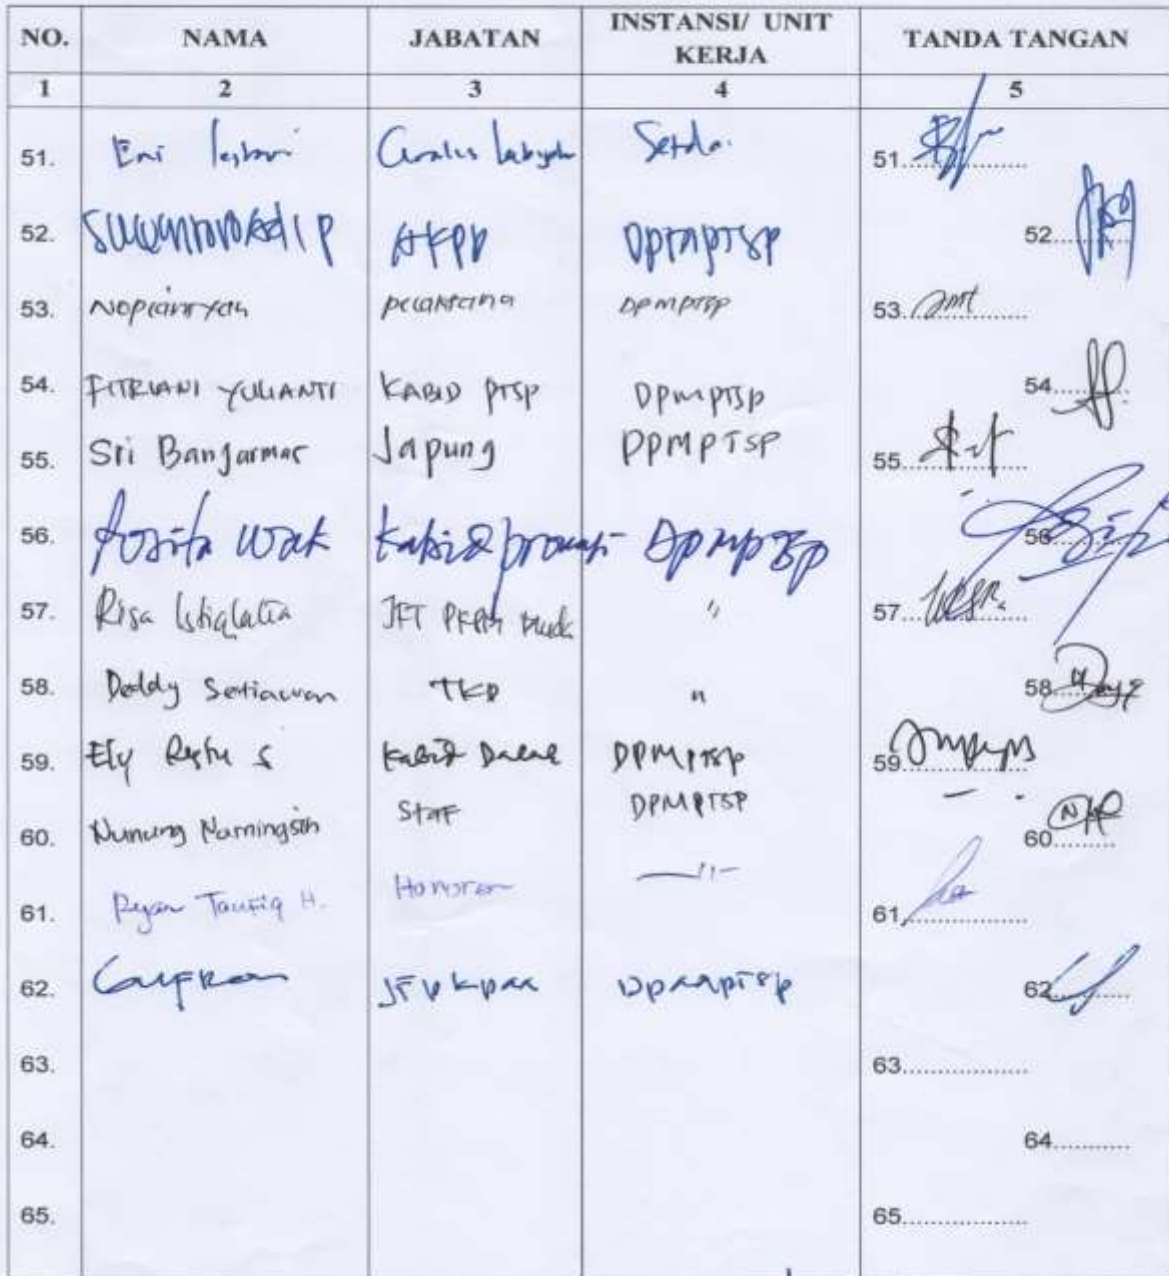 NO. NAMA JABATAN INSTANSI/ UNIT KERJA TANDA TANGAN
1 2 3 4 5
51. Eni lestari Setda. 51
52. AKPD DPMPTSP 52
53. Nopiansyah pelaksana DPMPTSP 53
54. FITRIANI YULIANTI KABID PTSP DPMPTSP 54
55. Sri Banjarmar Japung DPMPTSP 55
56. Rosita Kabid promosi DPMPTSP 56
57. Risa Istiqlalia JFT " 57
58. Deddy Setiawan TKD " 58
59. Ely Restu S Kabid Dalak DPMPTSP 59
60. Nunung Narningsih Staf DPMPTSP 60
61. Ryan Taufiq H. Honorer -"- 61
62. Gufron DPMPTSP 62
63. 63
64. 64
65. 65